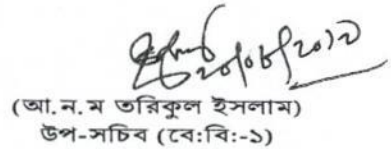 ২০/০৮/২০১২
(আ.ন.ম তরিকুল ইসলাম)
উপ-সচিব (বে:বি:-১)